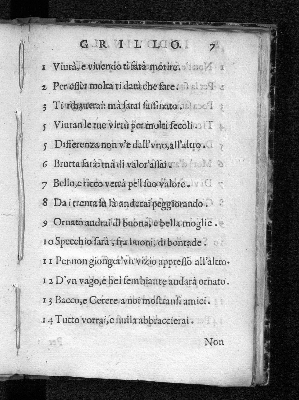 GRILLO. 7
1 Viurà, e viuendo ti farà morire.
2 Per assai molta ti darà che fare.
3 Ti ma sarai
5 Viuran le tue virtù per molti secoli.
5 Differenza non v'è dall'vno, all'altro.
6 Brutta sarà mà di valor'assai.
7 Bello, e ricco verrà pe'l suo valore.
8 Da i trenta in là anderai peggiorando.
9 Ornato andrai di buona, e bella moglie.
10 Specchio sarà, fra buoni, di bontade.
11 Per non gionger vn vizio appresso all'altro.
12 D'vn vago, e bel sembiante andarà ornato.
13 Bacco, e Cerere a noi mostransi amici.
14 Tutto vorrai, e nulla abbraccierai.
Non